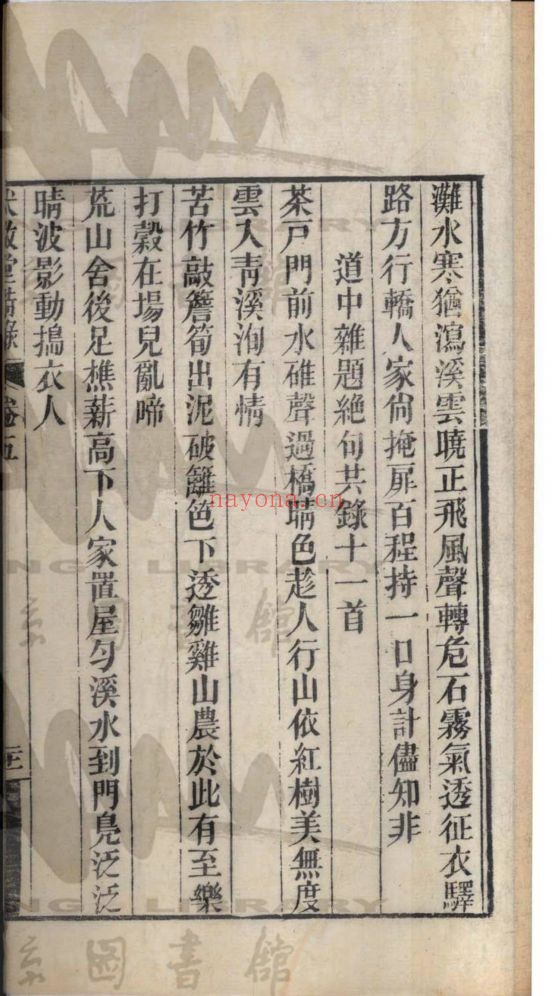 灘水寒猶瀉溪雲曉正飛風聲轉危石霧氣透征衣驛
路方行轎人家尙掩扉百程持一口身計儘知非
道中雜題絶句共錄十一首
茶戸門前水碓聲過橋晴色趁人行山依紅樹美無度
雲入靑溪洵有情
苦竹敲簷筍出泥破籬色下透雛雞山農於此有至樂
打穀在場兒亂啼
荒山舍後足樵薪高下人家置屋勻溪水到門鳧泛泛
晴波影動搗衣人
卷五
nayona.cn
LIBRARY
圖書館